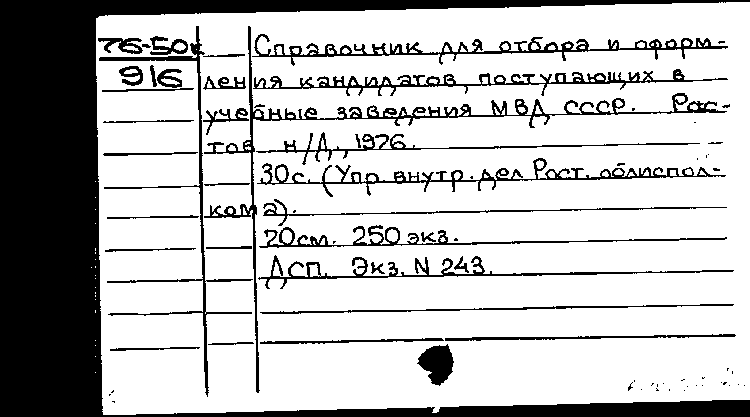 76-50к
916
Справочник для отбора и оформ-
ления кандидатов, поступающих в
учебные заведения МВД СССР. Рос-
тов н/Д., 1976.
30с. (Упр. внутр. дел Рост. облиспол-
кома).
20см. 250 экз.
ДСП. Экз. N 243.